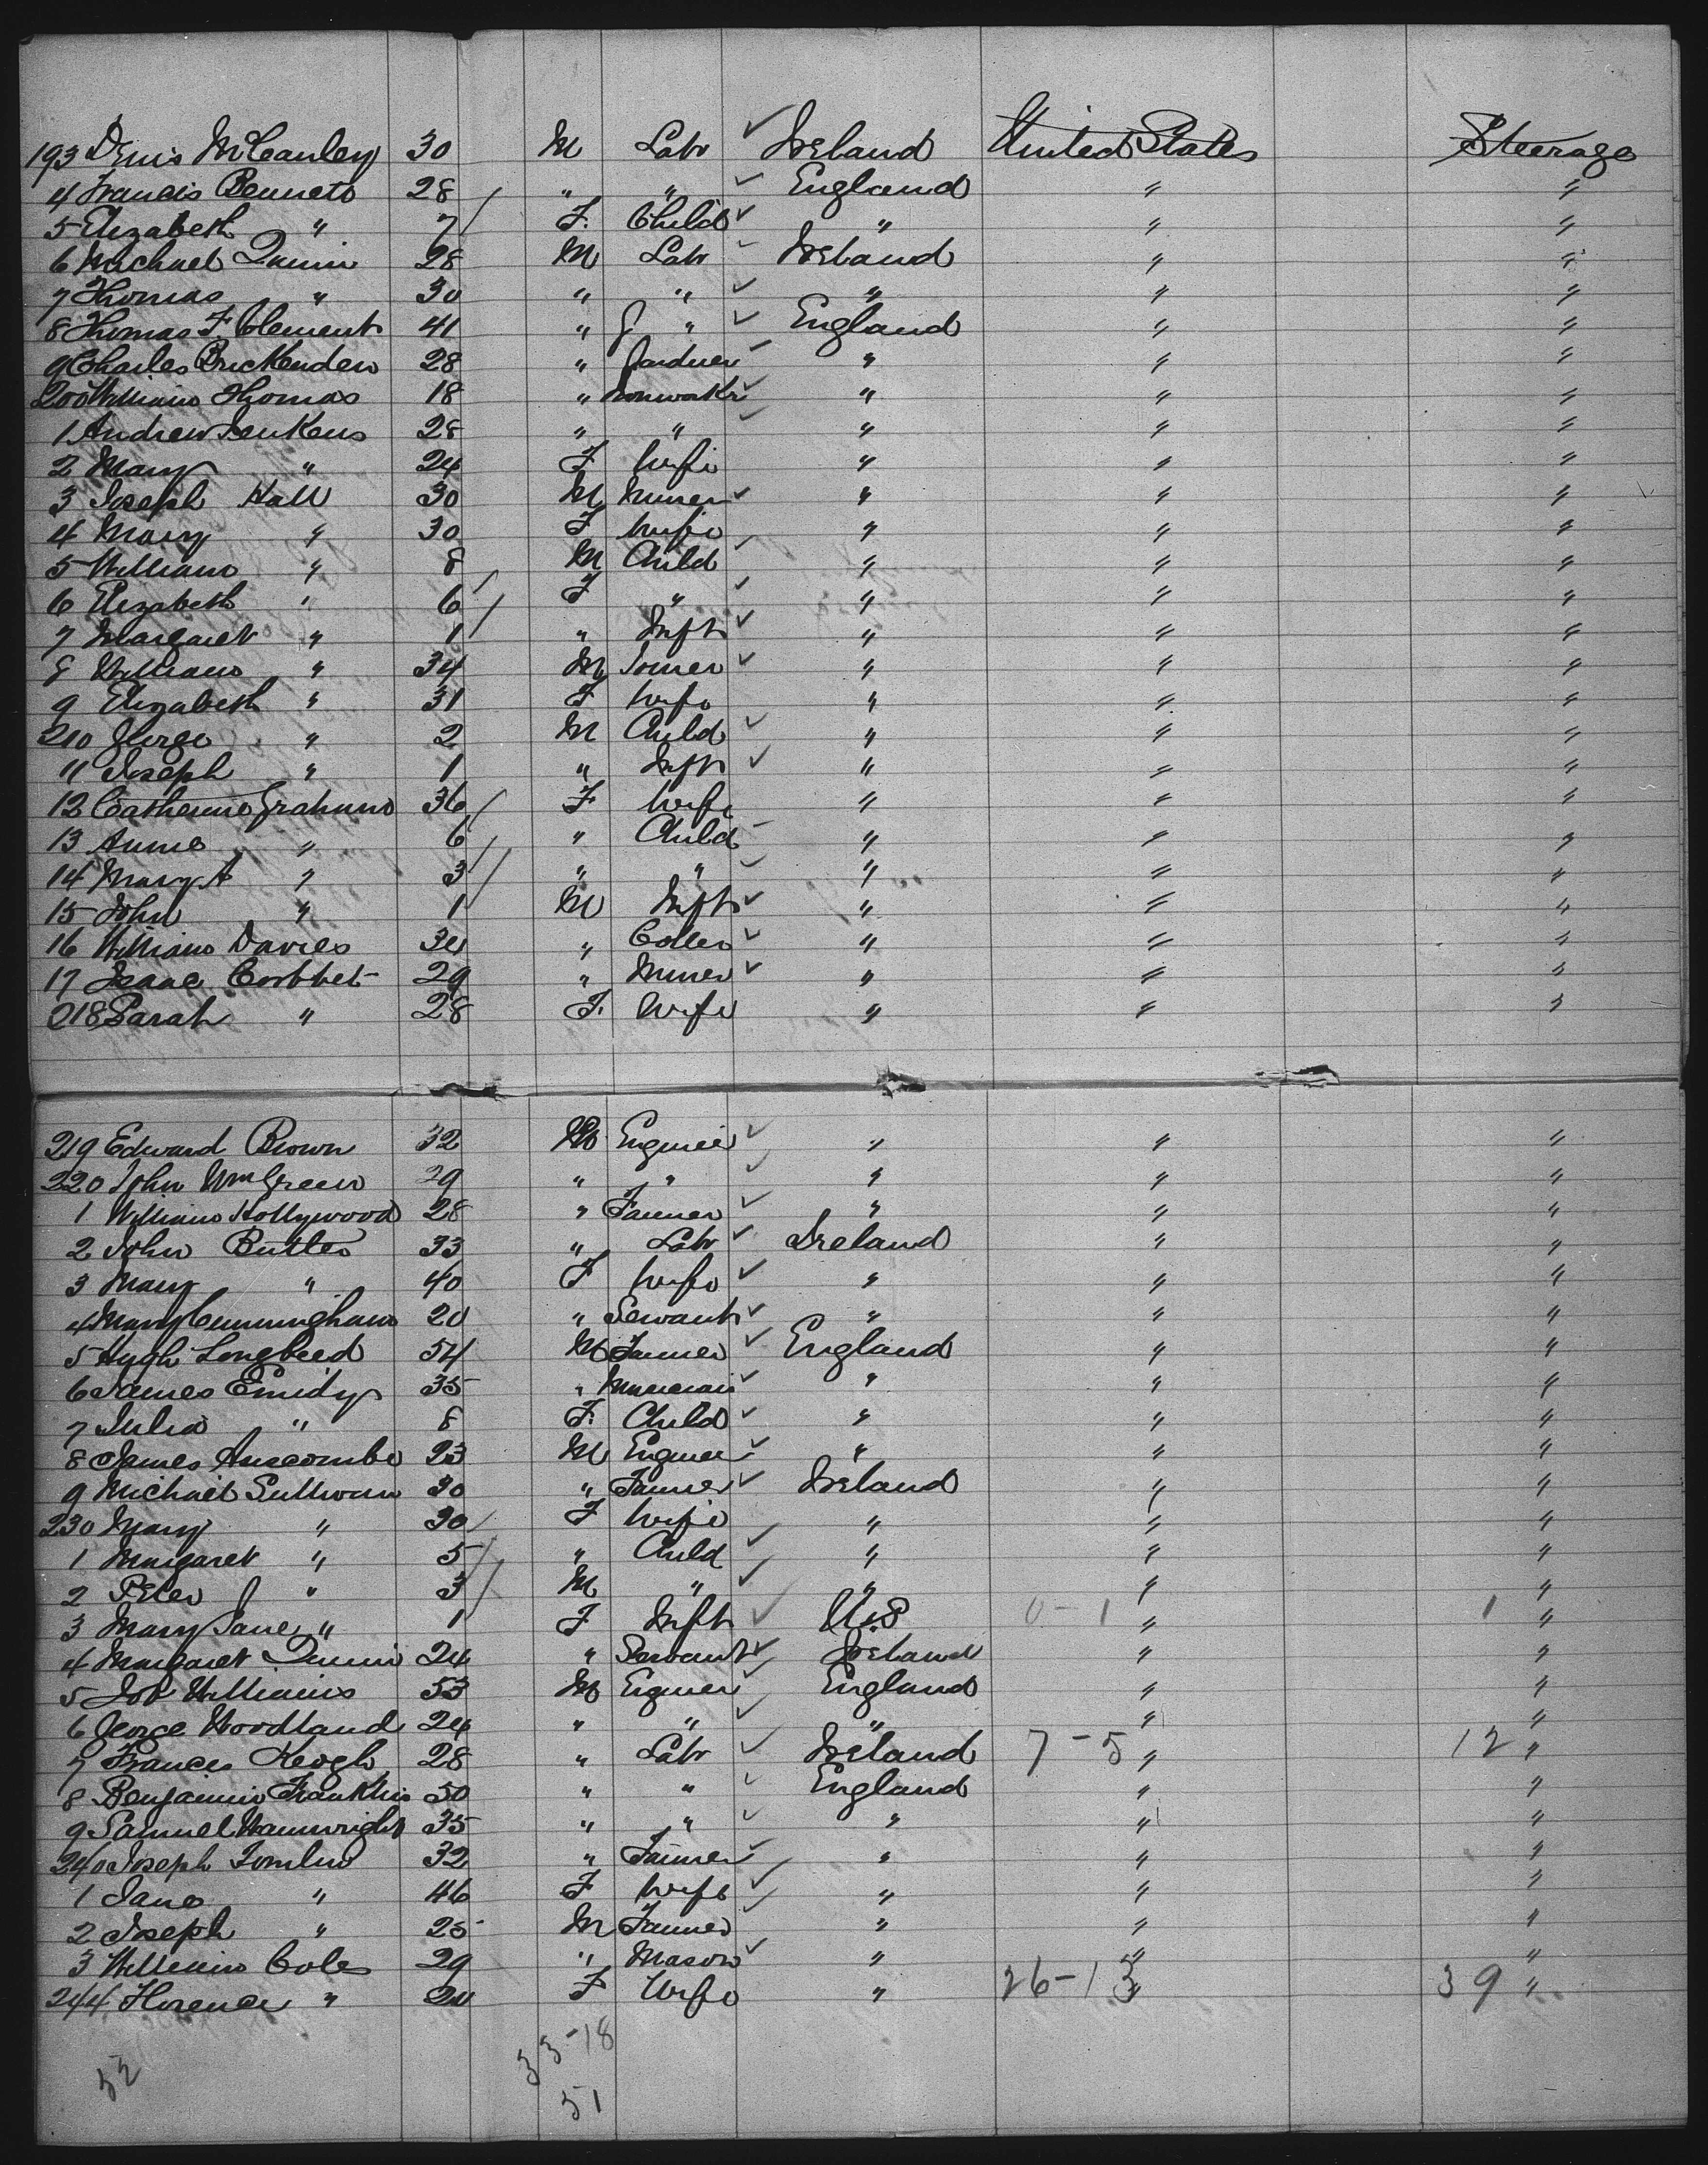 193 Denis McCauley 30 M Labr ✓ Ireland United States Steerage
4 Francis Bennets 28 " " ✓ England " "
5 Elizabeth " 7 F. Child ✓ " " "
6 Michael Quinn 28 M Labr Ireland " "
7 Thomas " 30 " " ✓ " " "
8 Thomas F Clement 41 " " ✓ England " "
9 Charles Brickenden 28 " Gardner " " "
200 William Thomas 18 " Ironworkr ✓ " " "
1 Andrew Jenkens 28 " " ✓ " " "
2 Mary " 24 F Wife " " "
3 Joseph Hall 30 M Miner ✓ " " "
4 Mary " 30 F Wife " " "
5 William " 8 M Child ✓ " " "
6 Elizabeth " 6 F " ✓ " " "
7 Margaret " 1 " Inft ✓ " " "
8 William " 34 M Joiner ✓ " " "
9 Elizabeth " 31 F Wife " " "
210 George " 2 M Child ✓ " " "
11 Joseph " 1 " Inft ✓ " " "
12 Catherine Graham 36 F Wife " " "
13 Annie " 6 " Child " " "
14 Mary A " 3 " " ✓ " " "
15 John " 1 M Inft ✓ " " "
16 William Davies 34 " Collier ✓ " " "
17 Isaac Corbbet 29 " Miner ✓ " " "
218 Sarah " 28 F. Wife " " "
219 Edward Brown 32 M Engineer ✓ " " "
220 John Wm Green 29 " " ✓ " " "
1 William Hollywood 28 " Farmer ✓ " " "
2 John Butler 33 " Labr ✓ Ireland " "
3 Mary " 40 F Wife ✓ " " "
4 Mary Cunningham 20 " Servant ✓ " " "
5 Hugh Longbeed 54 M Farmer ✓ England " "
6 James Emidy 35 " Musician " " "
7 Julia " 8 F. Child ✓ " " "
8 James Anscombe 23 M Engineer ✓ " " "
9 Michael Sullivan 30 " Farmer ✓ Ireland " "
230 Mary " 30 F Wife " " "
1 Margaret " 5 " Child ✓ " " "
2 Peter " 3 M " ✓ " " "
3 Mary Jane " 1 F Inft ✓ U.S 0-1 " 1 "
4 Margaret Quinn 24 " Servant ✓ Ireland " "
5 Job Williams 53 M Engineer ✓ England " "
6 George Woodland 24 " " ✓ " " "
7 Francis Keogh 28 " Labr ✓ Ireland 7-5 " 12 "
8 Benjamin Franklin 50 " " ✓ England " "
9 Samuel Wainwright 35 " " ✓ " " "
240 Joseph Tomlin 32 " Farmer ✓ " " "
1 Jane " 46 F Wife ✓ " " "
2 Joseph " 25 M Farmer " " "
3 William Coles 29 " Mason ✓ " " "
244 Florence " 20 F Wife " 26-13 " 39 "
33-18
52
51